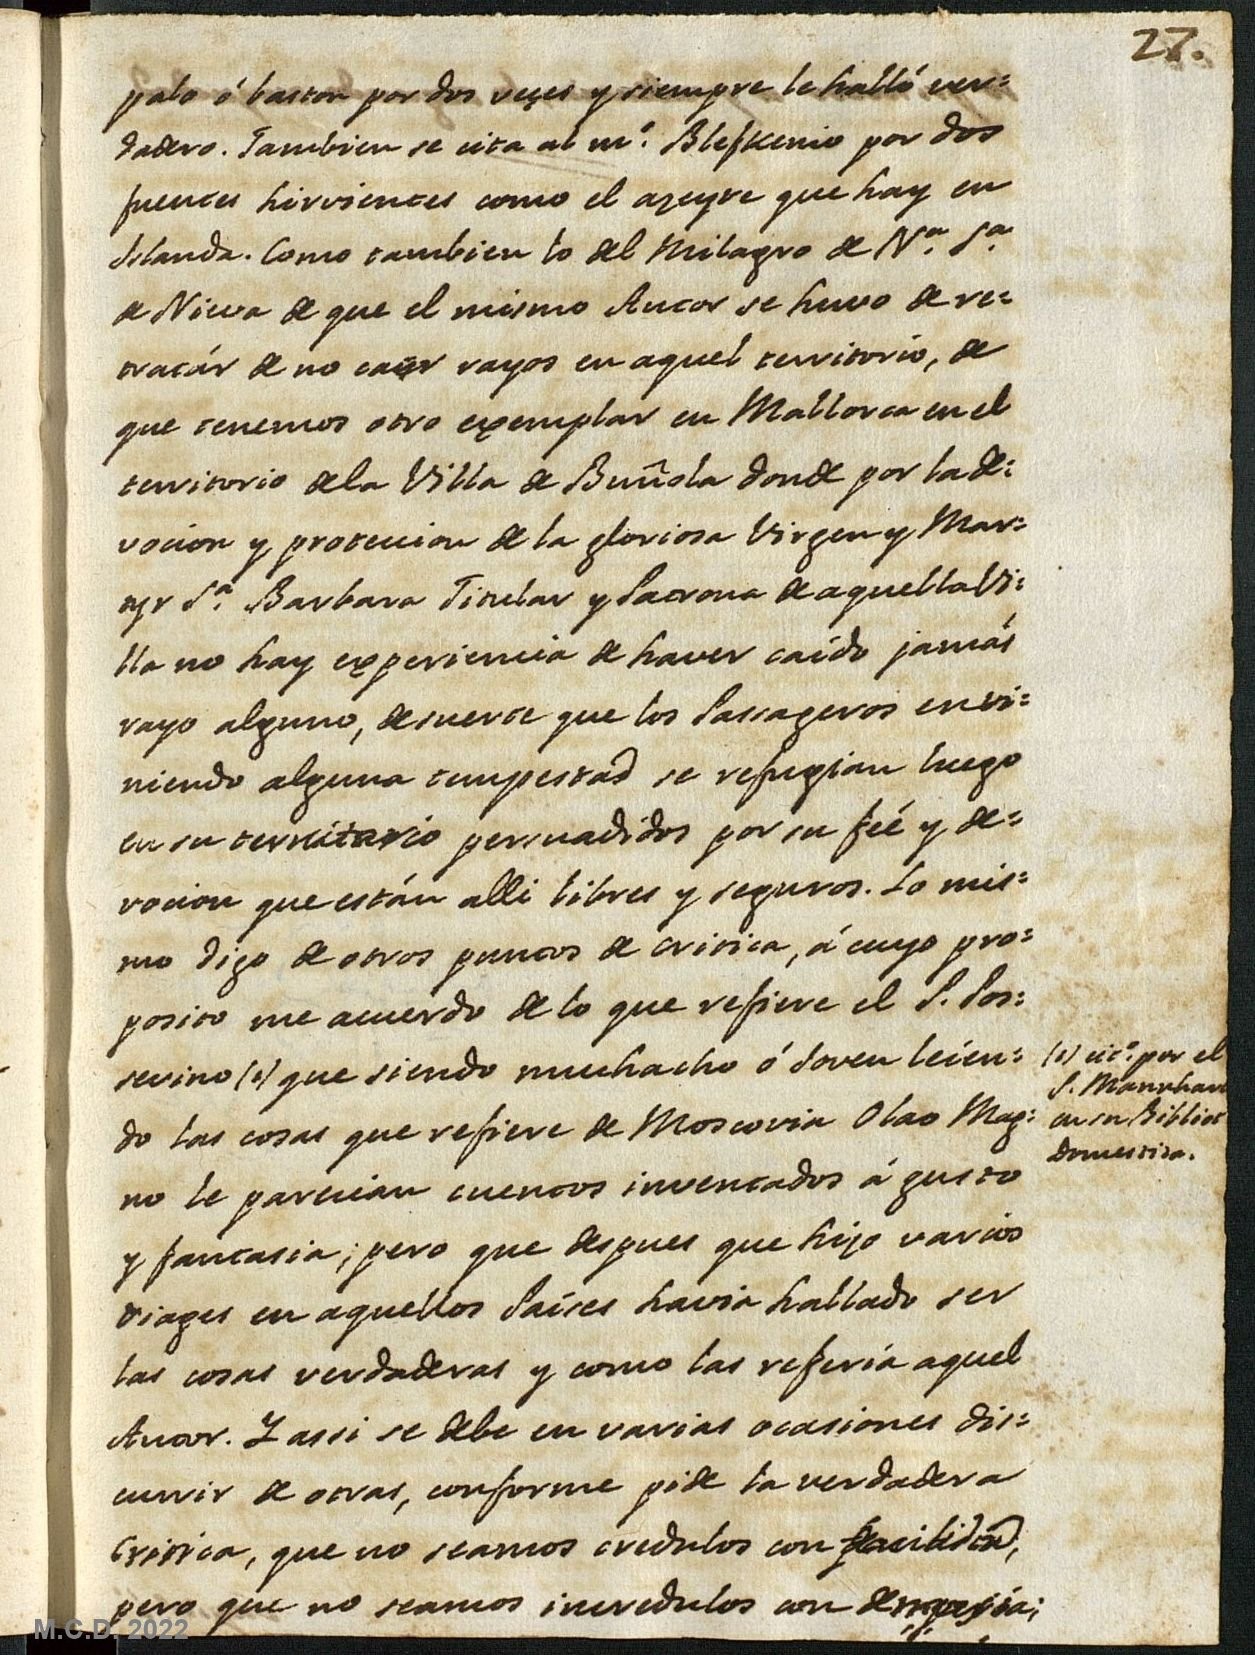 27.
palo ó baston por dos veçes y siempre le halló ver=
dadero. Tambien se cita al m.º Blefkenio por dos
fuentes hirvientes como el azeyte que hay en
Islanda. Como tambien lo del Milagro de N.ª S.ª
de Nieva de que el mismo Autor se huvo de re=
tratár de no caer rayos en aquel territorio, de
que tenemos otro exemplar en Mallorca en el
territorio dela Villa de Buñola donde por la de=
vocion y proteccion de la gloriosa Virgen y Mar=
tyr S.ª Barbara Titular y Patrona de aquella Vi=
lla no hay experiencia de haver caído jamás
rayo alguno, desuerte que los Passageros en vi=
niendo alguna tempestad se refugian luego
en su territorio persuadidos por su feé y de=
vocion que están alli libres y seguros. Lo mis=
mo digo de otros puntos de critica, á cuyo pro=
posito me acuerdo de lo que refiere el P. Pos=
sevino (1) que siendo muchacho ó Joven leíen=
do las cosas que refiere de Moscovia Olao Mag=
no le parecian cuentos inventados á gusto
y fantasia; pero que despues que hizo varios
viages en aquellos Países havia hallado ser
las cosas verdaderas y como las refería aquel
Autor. Y assi se debe en varias ocasiones dis=
currir de otras, conforme pide la verdadera
Critica, que no seamos credulos con facilidad,
pero que no seamos incredulos con demasia;
(1) cit.º por el
P. Mannhart
en su Bibliot
Domestica.
M.C.D. 2022